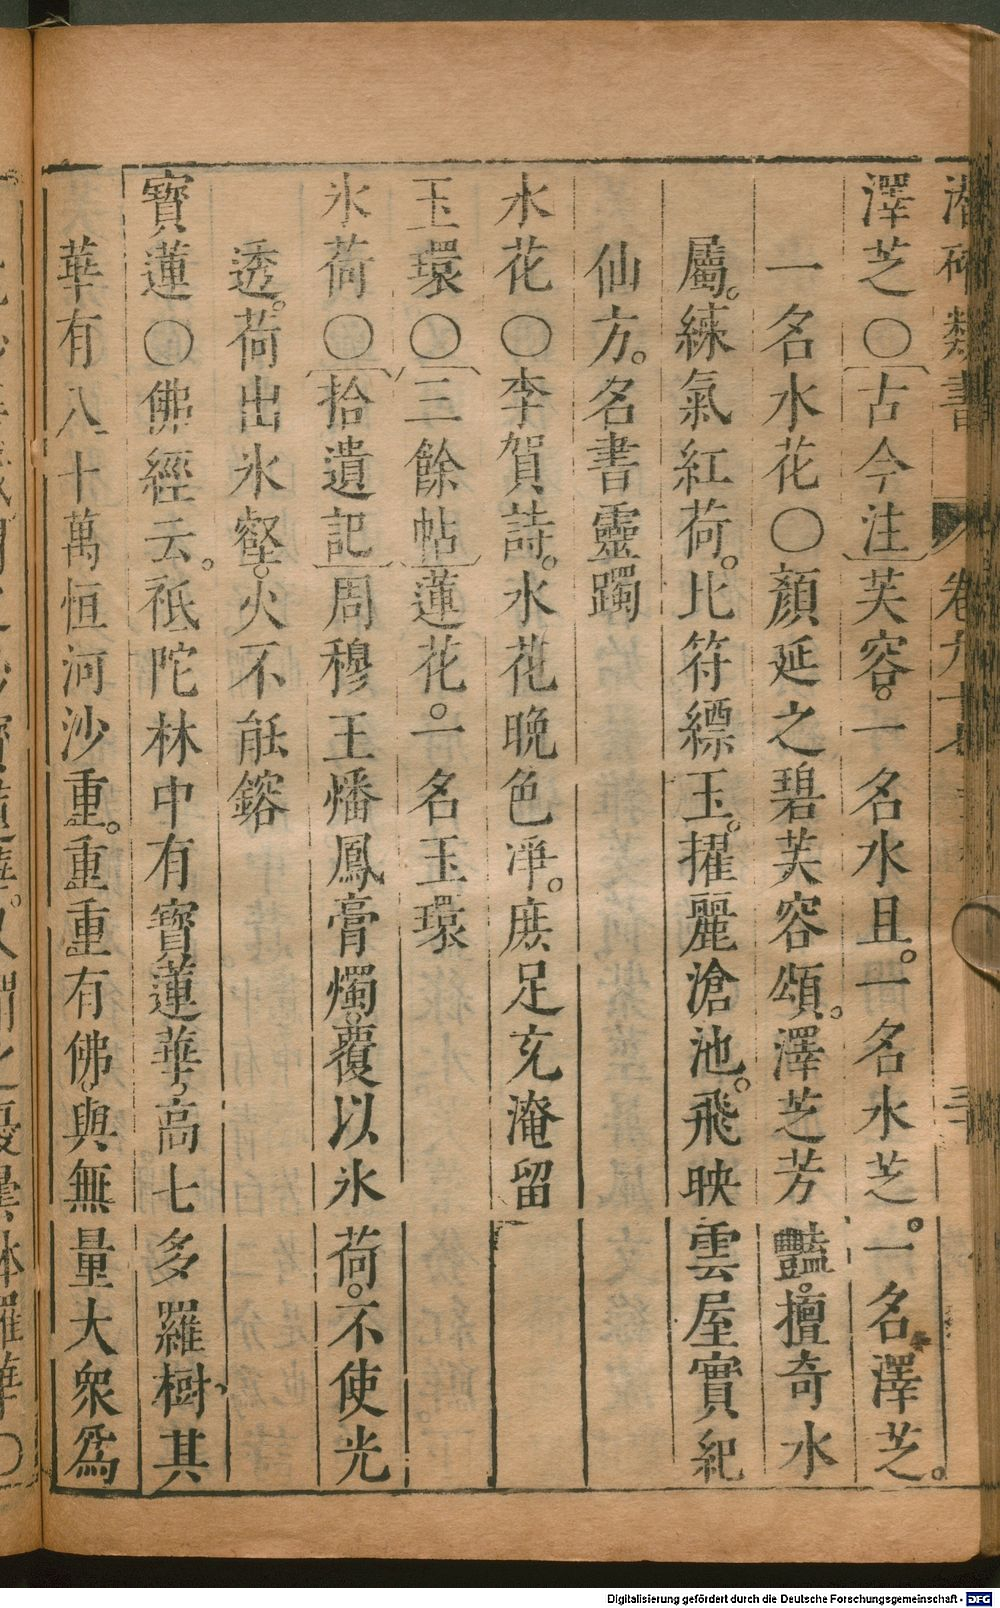 潛確類書 卷九十 三十
澤芝○古今注芙容。一名水且。一名水芝。一名澤芝。
一名水花○顏延之碧芙容頌。澤芝芳豔。擅奇水
屬。練氣紅荷。比符縹玉。擢麗滄池。飛映雲屋實紀
仙方。名書靈躅
水花○李賀詩。水花晚色淨。庶足充淹留
玉環○三餘帖蓮花。一名玉環
氷荷○拾遺記周穆王燔鳳膏燭。覆以氷荷。不使光
透。荷出氷壑。火不能鎔
寶蓮○佛經云。祇陀林中有寶蓮華。高七多羅樹其
華有八十萬恒河沙重。重重有佛。與無量大衆爲
Digitalisierung gefördert durch die Deutsche Forschungsgemeinschaft - DFG